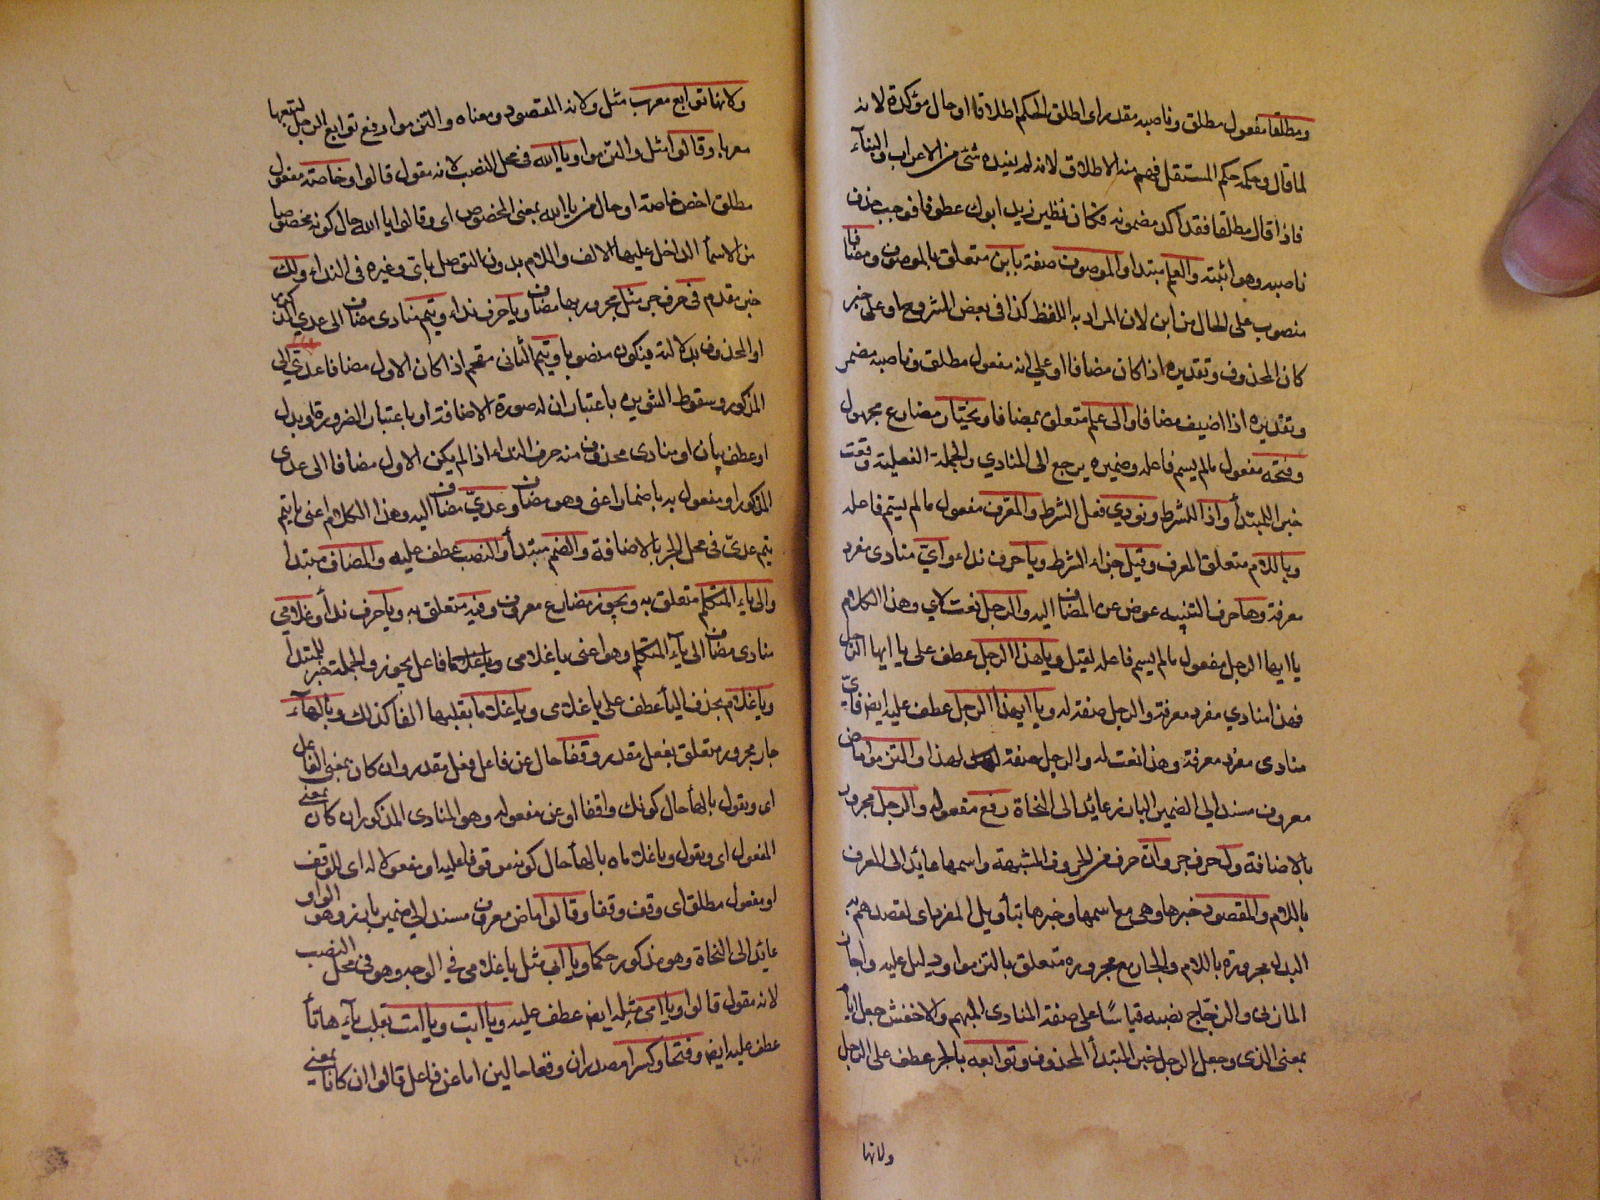 ومطلقا مفعول مطلق وناصبه مقدر اى اطلق الحكم اطلاقا او حال مؤكدة لانه
لما قال وحكمه حكم المستقل فهم منه الاطلاق لانه لم يفيده شئ من الاعراب والبناء
فاذا قال مطلقا فقد اكد مضمونه فكان نظير زيد ابوك عطوفا فوجب حذف
ناصبه وهو اثبته والعلم مبتدا والموصوف صفة بابن متعلق بالموصوف ومضافا
منصوب على الحال من ابن لان المراد به اللفظ كذا فى بعض الشروح او على خبر
كان المحذوف وتقديره اذا كان مضافا او على انه مفعول مطلق وناصبه مضمر
وتقديره اذا اضيف مضافا والى علم متعلق بمضافا ويختار مضارع مجهول
وفتحه مفعول مالم يسم فاعله وضميره يرجع الى المنادي والجملة الفعلية وقعت
خبر المبتدأ واذا للشرط ونودي فعل الشرط والمعرف مفعول مالم يسم فاعله
وباللام متعلق المعرف وقيل جزاء الشرط ويا حرف نداء واىّ منادى مفرد
معرفة وها حرف التنبيه عوض عن المضاف اليه والرجل نعت لاي وهذا الكلام
يا ايها الرجل مفعول مالم يسم فاعله لقيل ويا هذا الرجل عطف على يا ايها الرجل
فهذا منادي مفرد معرفة والرجل صفة له ويا ايهذا الرجل عطف عليه ايضا فاىّ
منادى مفرد معرفة وهذا نعت له والرجل صفة لهذا والتزموا ماض
معروف مسند الي الضمير البارز عائد الى النحاة رفع مفعوله والرجل مجرور
بالاضافة ول حرف جر وان حرف من الحروف المشبهة واسمها عائد الى المعرف
باللام والمقصود خبرها وهى مع اسمها وخبرها بتأويل المفرد اى لقصدهم به
البداء مجرورة باللام والجار مع مجروره متعلق بالتزموا ودليل عليه واجاز
المازنى والزجّاج نصبه قياسًا على صفة المنادى المبهم والاخفش جعل ايا
بمعنى الذى وجعل الرجل خبر المبتدأ المحذوف وتوابعه بالجر عطف على الرجل
ولانها
ولانها توابع معرب مثل ولانه المقصود ومعناه والتزموا رفع توابع الرجل لتبعها
معربا وقالوا مثل والتزموا ويا الله فى محل النصب لانه مقول قالوا وخاصة مفعول
مطلق اخص خاصة او حال من يا الله بمعنى المخصوص اى وقالوا يا الله حال كونه مخصوصا
من الاسماء الداخل عليها الالف واللام بدون التوصل باى وغيره فى النداء ولك
خبر مقدم فى حرف جر مثل مجرور بها مضاف ويا حرف نداء وتيم منادى مضاف الى عدي
او المحذوف بدلالته فيكون منصوبا وتيم الثانى مقحم اذا كان الاول مضافا عدى الى
المذكور وسقوط التنوين باعتبار ان له صورة الاضافة او باعتبار الضرورة او بدل
او عطف بيان او منادى محذوف منه حرف النداء اذا لم يكن الاول مضافا الى عدى
المذكور او مفعول به باضمار اعنى وهو مضاف وعديّ مضاف اليه وهذا الكلام اعنى يا تيم
تيم عدىّ فى محل الجر بالاضافة والضم مبتدأ والنصب عطف عليه والمضاف مبتدا
والى ياء المتكلم متعلق به ويجوز مضارع معروف وفيه متعلق به ويا حرف ندا وغلامي
منادى مضاف الى ياء المتكلم وهو اعنى يا غلامى فاعل يجوز والجملة خبر المبتدأ
ويا غلام بحذف اليا عطف على يا غلامى ويا غلاما بقلبها الفا كذلك وبالهاء
جار مجرور متعلق بفعل مقدر وقفا حال عن فاعل فعل مقدر وان كان بمعنى الفاعل
اى ويقول بالهاء حال كونك واقفا او عن مفعوله وهو المنادى المذكور ان كان بمعنى
المفعول اى ويقول ويا غلاماه بالهاء حال كونه موقوفا عليه او مفعولا له اى للوقف
او مفعول مطلق اى وقف وقفا وقالوا ماض معروف مسند الى ضمير بارز وهو الواو
عائد الى النحاة وهو مذكور حكما ويا ابى مثل يا غلامى فى الوجوه وهو فى محل النصب
لانه مقول قالوا ويا امى مثله ايضا عطف عليه ويا ابت ويا امت بقلب ياءها تاء
عطف عليه ايضا وفتحا وكسرا مصدران وقعا حالين اما عن فاعل قالوا ان كانا بمعنى